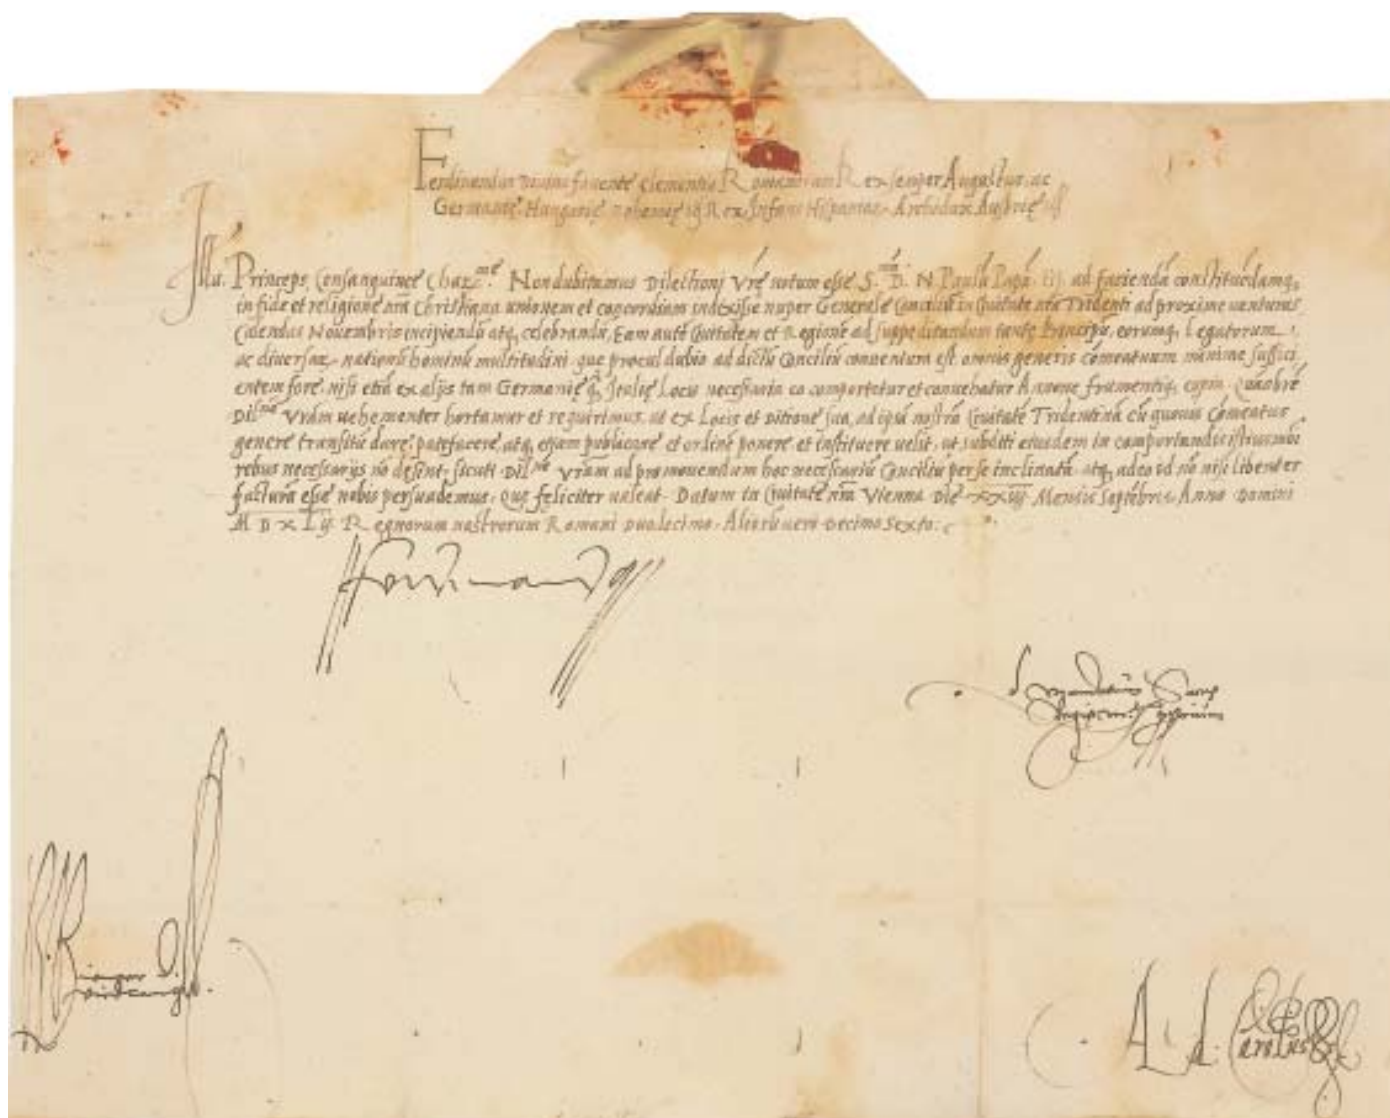 Ferdinandus divina favente clementia Romanorum Rex semper Augustus, ac
Germanię, Hungarię, Bohemię iꝗ Rex, Infans Hispaniar, Archidux Austrię
Illu. Princeps, Consanguineę Chariss.me. Non dubitamus Dilectioni Vrę notum esse S.mũ D. N. Paulũ Papã III. ad faciendã constituẽdamq,
in fide et religione nrã Christiana unionem et concordiam indexisse nuper Generale Conciliũ in Civitate nrã Tridenti ad proxime venturas
Calendas Novembris incipiendũ atq, celebrandũ, Eam autẽ Civitatem et Regionẽ ad suppeditandum tantę Principũ, eorumq, Legatorum,
ac diversar, nationũ hominũ multitudini, que procul dubio ad dictũ Conciliũ conventura est omnis generis cõmeatuum minime suffici
entem fore, nisi etiã ex alijs tam Germanię q̃ Italię Locis necessaria eo comportetur et convehatur Annone frumentiq, copia. Quãobrẽ
Dil.nem Vram vehementer hortamur et requirimus, ut ex Locis et Ditione sua, ad ipsã nostrã Civitatẽ Tridentinã cũ quovis cõmeatus
genere transitũ dare, patefacere, atq, etiam publicare et ordinẽ ponere et instituere velit, ut subditi eiusdem in comportandis istiusmõi
rebus necessarijs nõ desint, sicuti Dil.nem Vram ad promovendum hoc necessariũ Conciliũ per se inclinatã atq, adeo id nõ nisi libenter
facturã esse nobis persuademus. Quę feliciter valeat. Datum in Civitate nrã Vienna Die XXIIJ Mensis Septẽbris, Anno Domini
M D X L IJ. Regnorum nostrorum Romani Duodecimo, Aliorũ vero Decimo Sexto.
Ferdinandus
Carolus